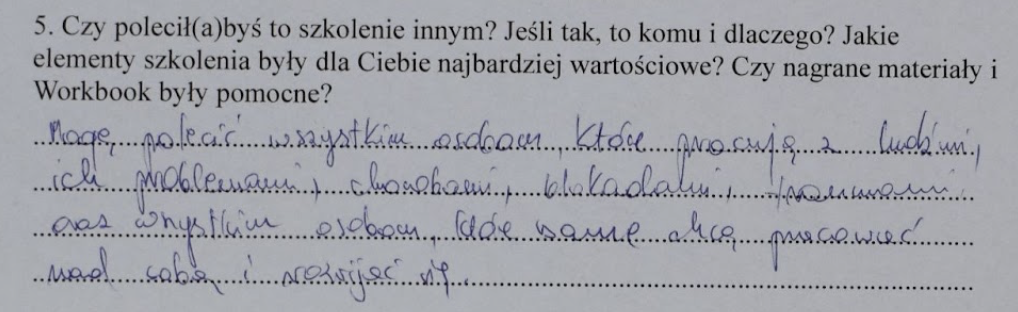 5. Czy polecił(a)byś to szkolenie innym? Jeśli tak, to komu i dlaczego? Jakie
elementy szkolenia były dla Ciebie najbardziej wartościowe? Czy nagrane materiały i
Workbook były pomocne?
Mogę polecić wszystkim osobom, które pracują z ludźmi,
ich problemami, chorobami, blokadami, traumami
oraz wszystkim osobom, które same chcą pracować
nad sobą i rozwijać się.